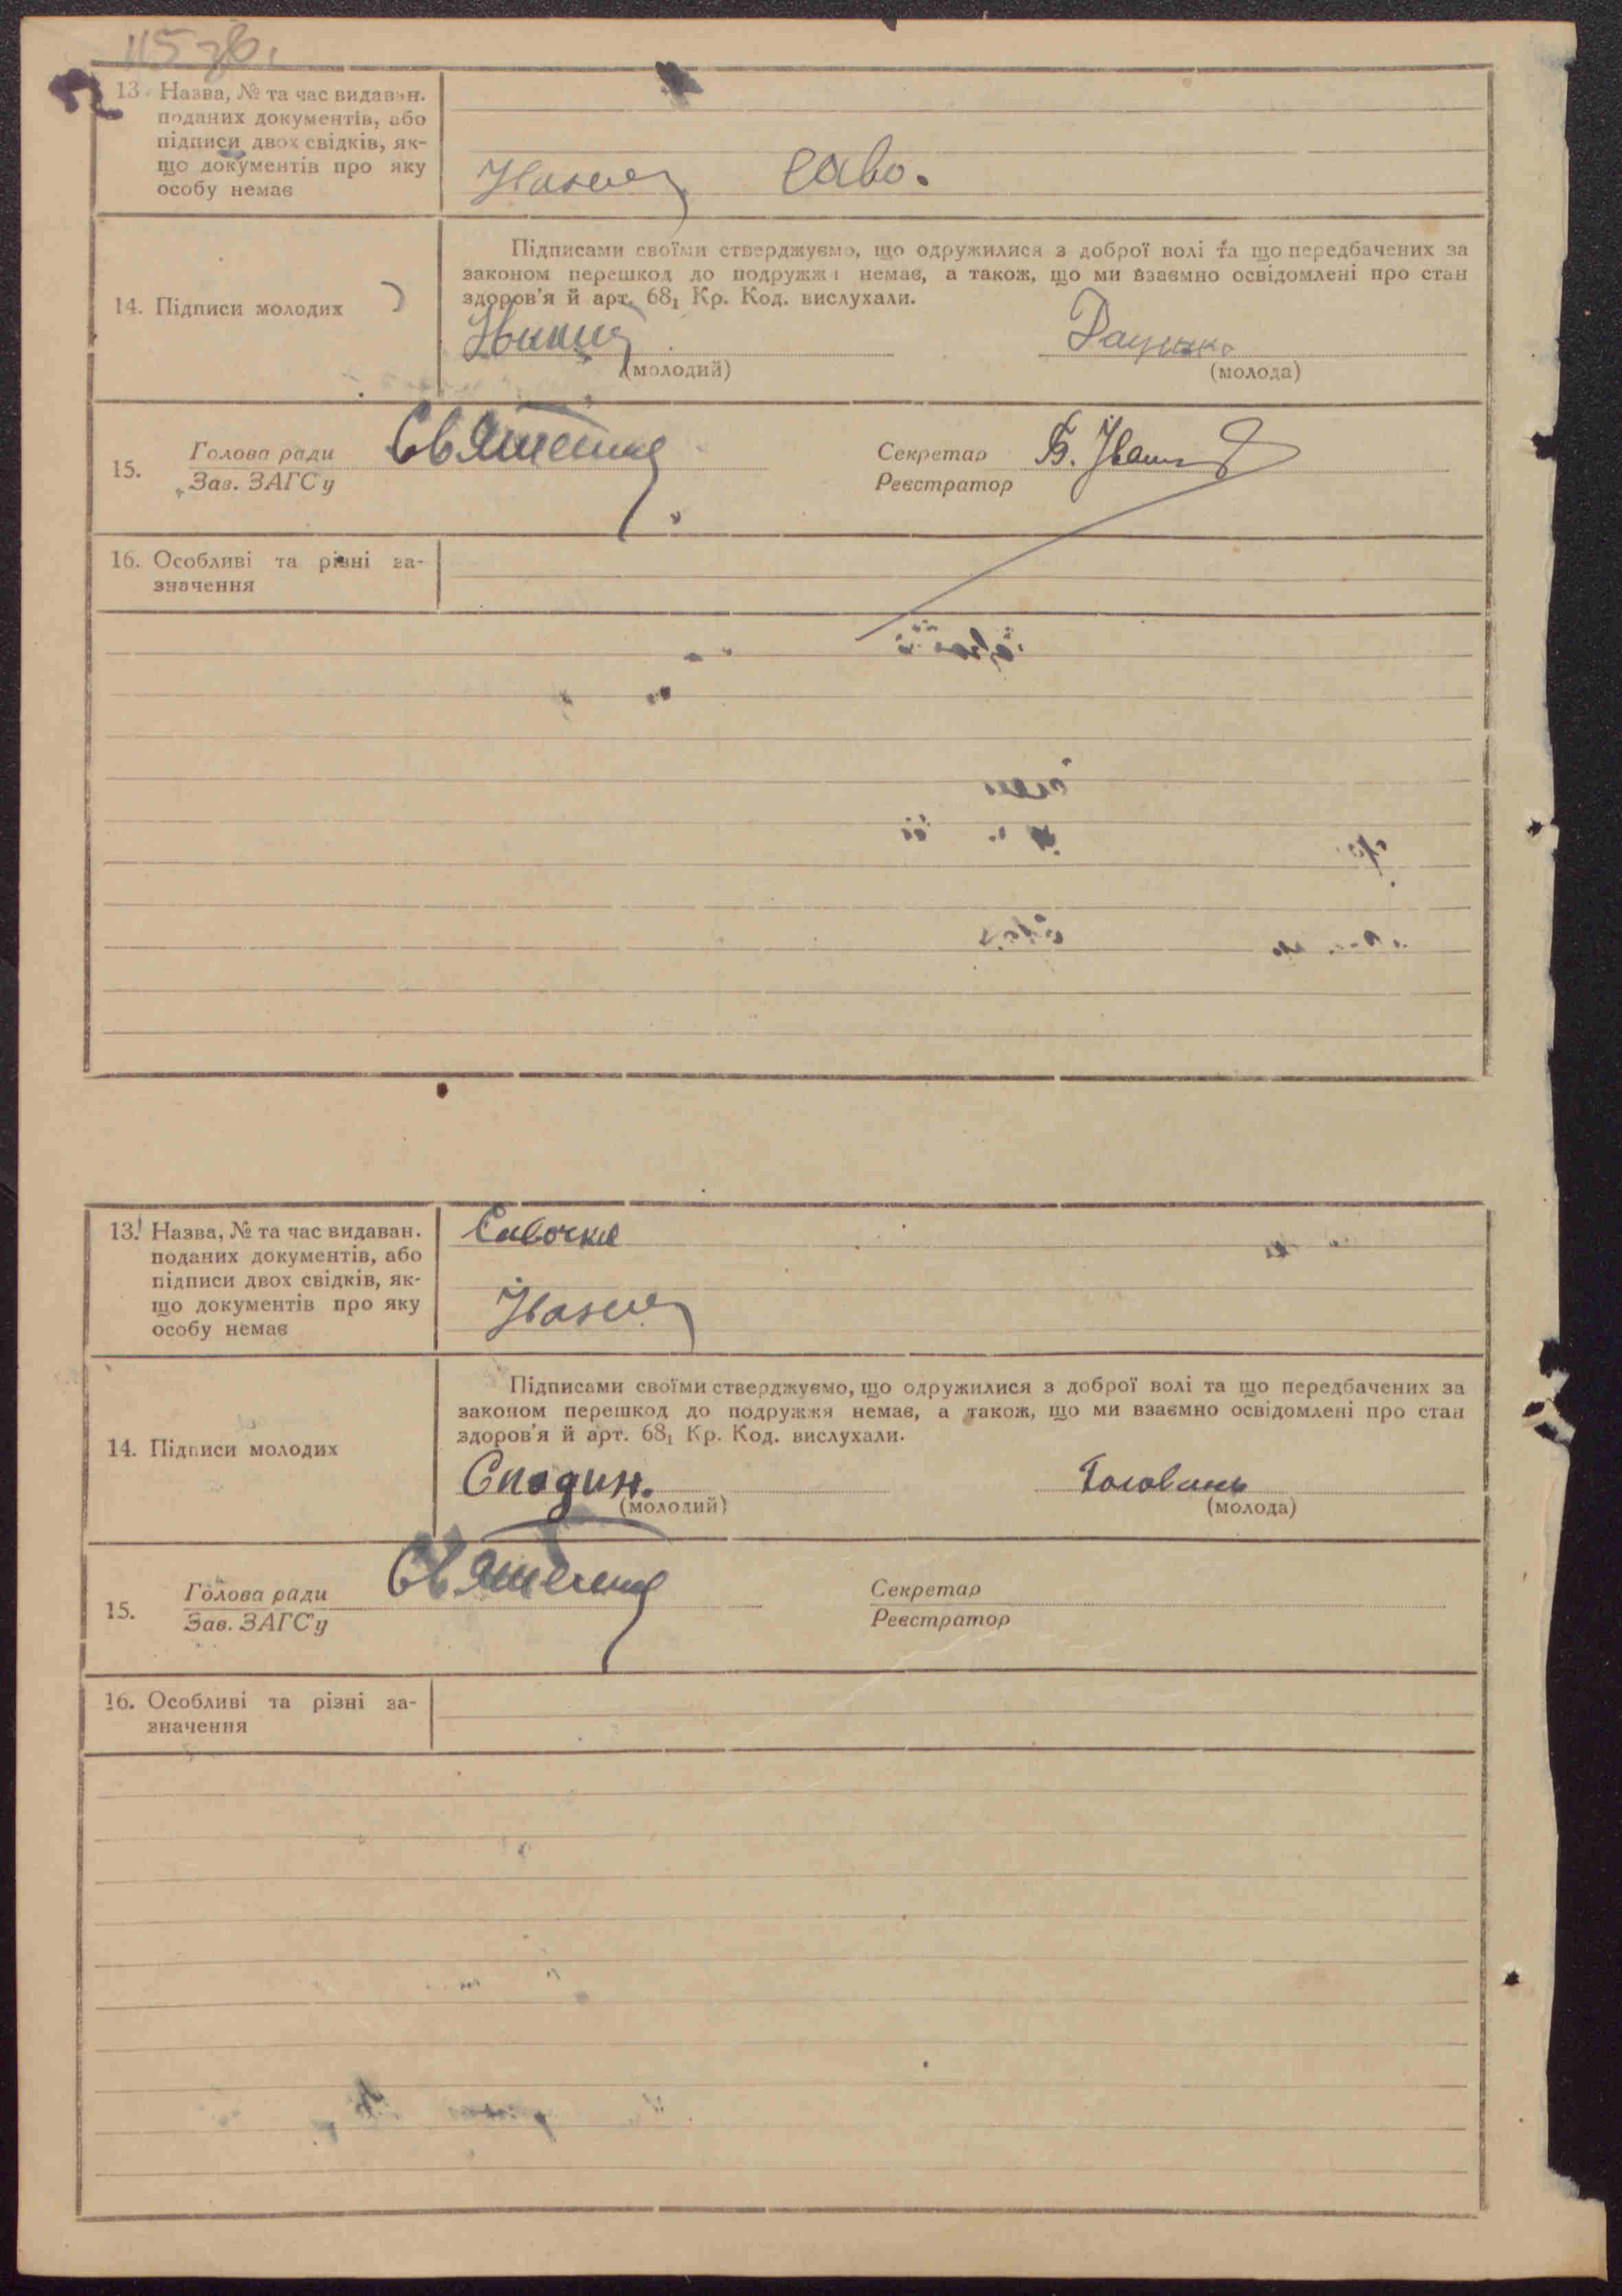 115 зв.
13. Назва, № та час видаван.
поданих документів, або
підписи двох свідків, як-
що документів про яку
особу немає
саво.
14. Підписи молодих
Підписами своїми стверджуємо, що одружилися з доброї волі та що передбачених за
законом перешкод до подружжя немає, а також, що ми взаємно освідомлені про стан
здоров'я й арт. 68₁ Кр. Код. вислухали.
(молодий)
(молода)
15.
Голова ради
Зав. ЗАГС'у
Секретар
Б.
Реєстратор
16. Особливі та різні за-
значення
13. Назва, № та час видаван.
поданих документів, або
підписи двох свідків, як-
що документів про яку
особу немає
Савочка
14. Підписи молодих
Підписами своїми стверджуємо, що одружилися з доброї волі та що передбачених за
законом перешкод до подружжя немає, а також, що ми взаємно освідомлені про стан
здоров'я й арт. 68₁ Кр. Код. вислухали.
Сподин.
Головань
(молодий)
(молода)
15.
Голова ради
Зав. ЗАГС'у
Секретар
Реєстратор
16. Особливі та різні за-
значення